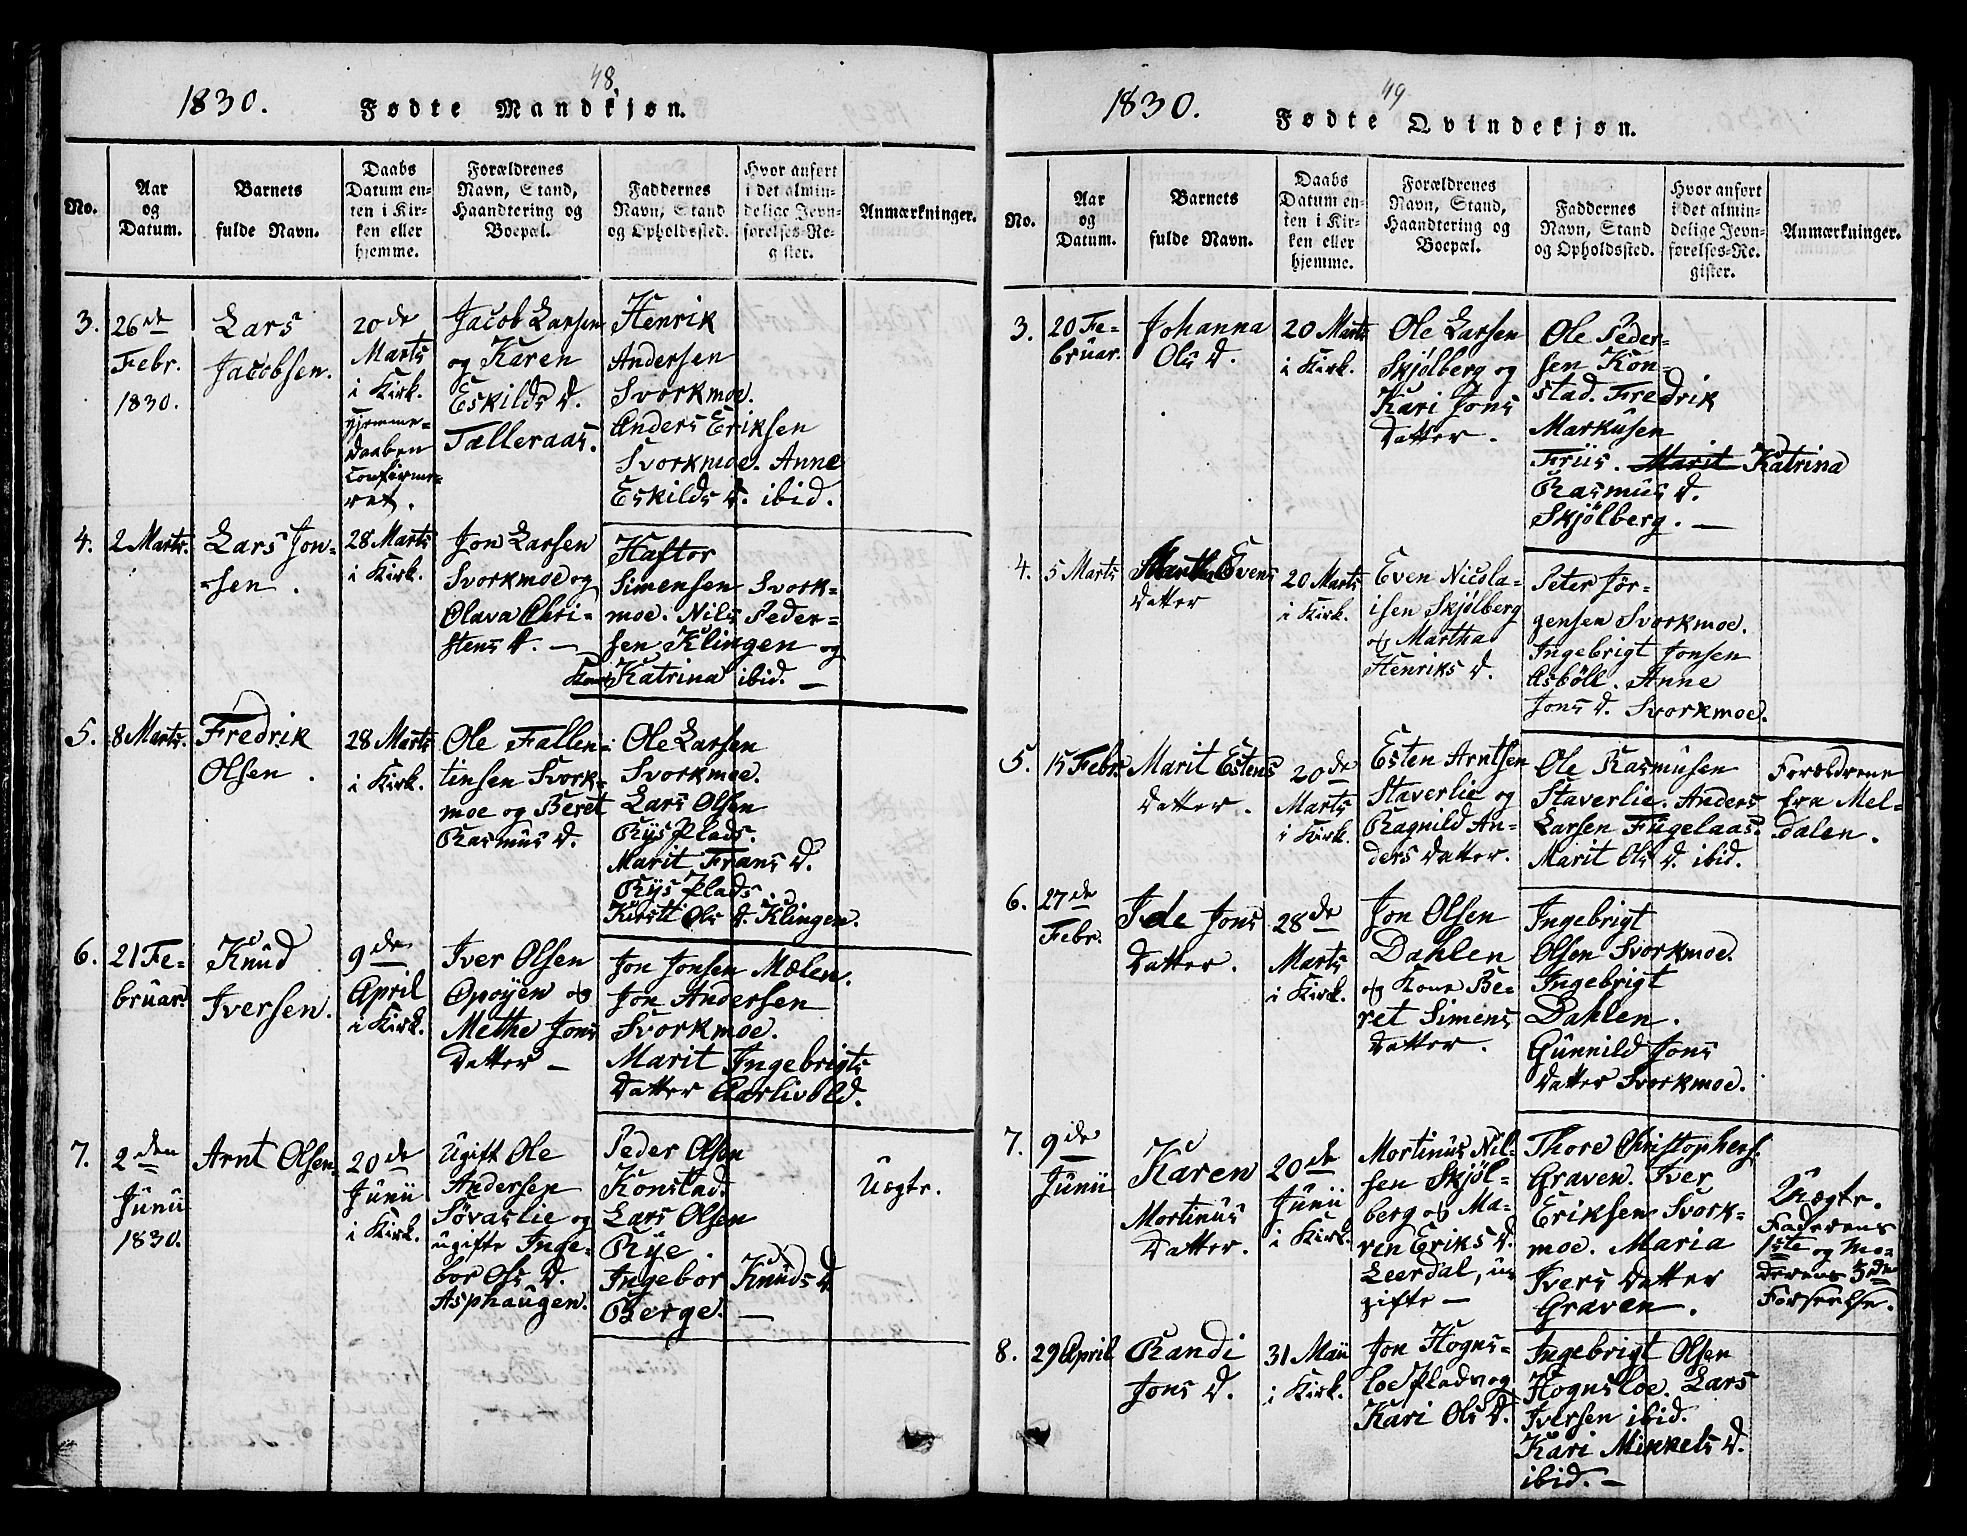 48.
1830.
Fødte Mandkjøn.
No.
Aar
og
Datum.
Barnets
fulde Navn.
Daabs
Datum en-
ten i Kir-
ken eller
hjemme.
Forældrenes
Navn, Stand,
Haandtering og
Boepæl.
Faddernes
Navn, Stand
og Opholdssted.
Hvor anført
i det almin-
delige Jevn-
førelses-Re-
gister.
Anmærkninger.
3.
26de
Febr.
1830.
Lars
Jacobsen.
20de
Marts
i Kirk.
hjemme-
daaben
confirme-
ret.
Jacob Larsen
og Karen
Eskilds D.
Tælleraas.
Henrik
Andersen
Svorkmoe.
Anders Eriksen
Svorkmoe. Anne
Eskilds D. ibid.
4.
2 Marts.
Lars Jon-
sen.
28 Marts
i Kirk.
Jon Larsen
Svorkmoe og
Olava Chri-
stens D. —
Haftor
Simensen Svork-
moe. Nils Peder-
sen Klingen og
Kone Katrina ibid. —
5.
8 Marts.
Fredrik
Olsen.
28 Marts
i Kirk.
Ole Fallen-
tinsen Svork-
moe og Beret
Rasmus D.
Ole Larsen
Svorkmoe.
Lars Olsen
Rys Plads.
Marit Frans D.
Rys Plads
Kirsti Ols D. Klingen.
6.
21 Fe-
bruar.
Knud
Iversen.
9de
April
i Kirk.
Iver Olsen
Opøyen og
Methe Jons
Datter —
Jon Jonsen Mælen.
Jon Andersen
Svorkmoe.
Marit Ingebrigts
Datter Aarlivold.
7.
2den
Junii
1830.
Arnt Olsen
20de
Junii
i Kirk.
Ugift Ole
Andersen
Søvaslie og
ugifte Inge-
bor Ols D.
Asphaugen.
Peder Olsen
Konstad.
Lars Olsen
Rye.
Ingebor Knuds D.
Berge. —
Uægte.
49
1830.
Fødte Qvindekjøn.
No.
Aar
og
Datum.
Barnets
fulde Navn.
Daabs
Datum en-
ten i Kir-
ken eller
hjemme.
Forældrenes
Navn, Stand,
Haandtering og
Boepæl.
Faddernes
Navn, Stand
og Opholdssted.
Hvor anført
i det almin-
delige Jevn-
førelses-Re-
gister.
Anmærkninger.
3.
20 Fe-
bruar.
Johanna
Ols D.
20 Marts
i Kirk.
Ole Larsen
Skjølberg og
Kari Jons
Datter.
Ole Peder-
sen Kon-
stad. Fredrik
Markusen
Friis. Marit Katrina
Rasmus D.
Skjølberg. —
4.
5 Marts
Martha Evens
Datter
20 Marts
i Kirk.
Even Nicola-
isen Skjølberg
og Martha
Henriks D.
Peter Jør-
gensen Svorkmoe.
Ingebrigt Jonsen
Asbøll. Anne
Jons D. Svorkmoe.
5.
15 Febr.
Marit Estens
Datter.
20de
Marts
i Kirk.
Esten Arntsen
Staverlie og
Ragnild An-
ders Datter.
Ole Rasmusen
Staverlie. Anders
Larsen Fugelaas.
Marit Ols D. ibid.
Forældrene
fra Mel-
dalen.
6.
27de
Febr.
Ide Jons
Datter.
28de
Marts
i Kirk.
Jon Olsen
Dahlen
og Kone Be-
ret Simens
Datter.
Ingebrigt
Olsen Svorkmoe.
Ingebrigt
Dahlen.
Gunnild Jons
Datter Svorkmoe.
7.
9de
Junii
Karen
Mortinus
Datter.
20de
Junii
i Kirk.
Mortinus Nil-
sen Skjøl-
berg og Ma-
ren Eriks D.
Leerdal, u-
gifte —
Thore Christophers.
Graven. Iver
Eriksen Svork-
moe. Maria
Ivers Datter
Graven.
Uægte.
Faderens
1ste og Mo-
derens 3die
Forseelse.
8.
29 April
Randi
Jons D.
31 Maii
i Kirk.
Jon Hogns-
loe Plads og
Kari Ols D.
Ingebrigt Olsen
Hognsloe. Lars
Iversen ibid.
Kari Mikkels D.
ibid. —